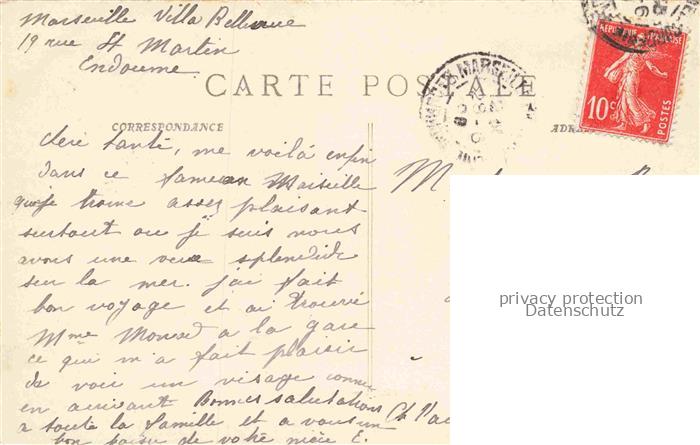 Marseille Villa Bellevue
19 rue St Martin
Endoume
CARTE POSTALE
CORRESPONDANCE
MARSEILLE
REPUBLIQUE FRANÇAISE
10c
POSTES
Chere tante, me voilà enfin
dans ce fameux Marseille
que je trouve assez plaisant
surtout ou je suis nous
avons une vue splendide
sur la mer. j'ai fait
bon voyage et ai trouvé
Mme Monod a la gare
ce qui m'a fait plaisir
de voir un visage connu
en arrivant Bonnes salutations
a toute la famille et a vous un
bon baiser de votre nièce E.
M
privacy protection
Datenschutz